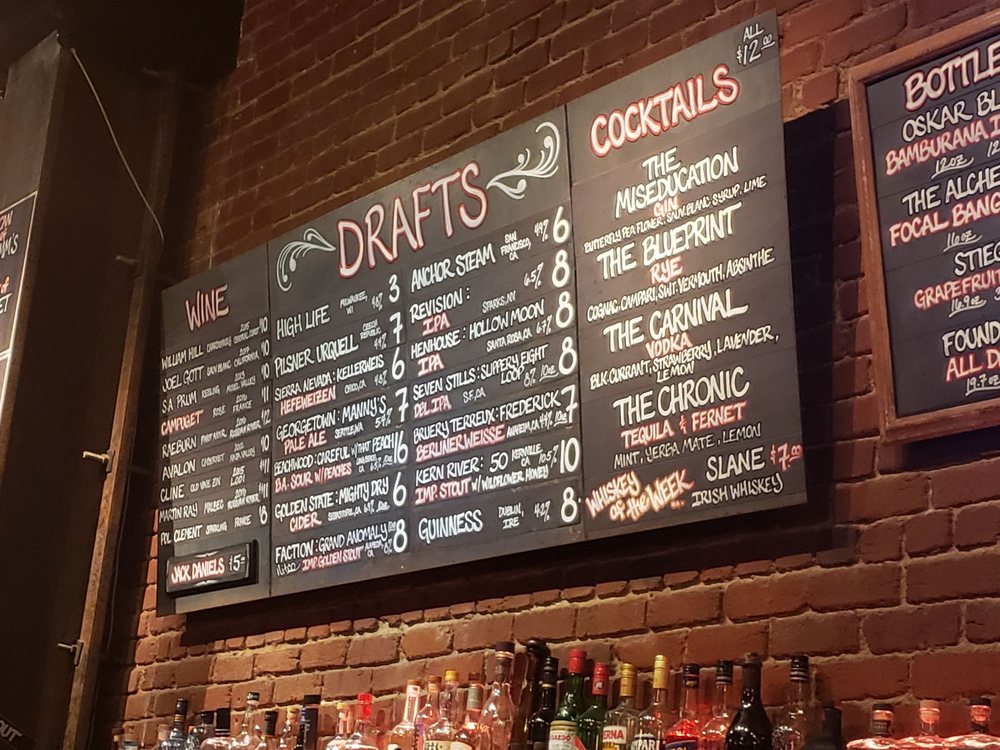 WINE
WILLIAM HILL CHARDONNAY 2015 CENTRAL COAST 10
JOEL GOTT SAUV BLANC CALIFORNIA 10
S.A PRUM RIESLING MOSEL VALLEY
CAMPUGET ROSE 2016 FRANCE
RAEBURN PINOT NOIR RUSSIAN RIVER
AVALON CABERNET NAPA VALLEY 10
CLINE OLD VINE ZIN 2015 LODI
MARTIN RAY MALBEC RUSSIAN RIVER
POL CLEMENT SPARKLING FRANCE 8
JACK DANIELS $5
DRAFTS
HIGH LIFE MILWAUKEE, WI 4.5% 3
PILSNER URQUELL CZECH REPUBLIC 4.4% 7
SIERRA NEVADA: KELLERWEIS 6
HEFEWEIZEN CHICO, CA 4.8%
GEORGETOWN: MANNY'S 7
PALE ALE SEATTLE, WA 5.4%
BEACHWOOD: CAREFUL W/ THAT PEACH 16
B.A. SOUR W/ PEACHES
GOLDEN STATE: MIGHTY DRY 6
CIDER SEBASTOPOL, CA
FACTION: GRAND ANOMALY 8
NITRO IMP. GOLDEN STOUT
ANCHOR STEAM SAN FRANCISCO, CA 4.9% 6
REVISION: 6.5% 8
IPA SPARKS, NV
HENHOUSE: HOLLOW MOON 8
IPA SANTA ROSA, CA 6.7%
SEVEN STILLS: SLIPPERY EIGHT LOOP 8
DBL IPA S.F., CA 8% 10oz
BRUERY TERREUX: FREDERICK 7
BERLINER WEISSE ANAHEIM, CA 4.4% 10oz
KERN RIVER: 50 KERNVILLE, CA 10.5% 10
IMP. STOUT W/ WILDFLOWER HONEY
GUINNESS DUBLIN, IRE 4.2% 8
ALL
$12.00
COCKTAILS
THE
MISEDUCATION
GIN
BUTTERFLY PEA FLOWER, SAUV. BLANC SYRUP, LIME
THE BLUEPRINT
RYE
COGNAC, CAMPARI, SWT. VERMOUTH, ABSINTHE
THE CARNIVAL
VODKA
BLK CURRANT, STRAWBERRY, LAVENDER,
LEMON
THE CHRONIC
TEQUILA & FERNET
MINT, YERBA MATE, LEMON
WHISKEY
OF THE WEEK
SLANE $7.00
IRISH WHISKEY
BOTTLE
OSKAR BL
BAMBURANA
12oz
THE ALCHE
FOCAL BANG
16oz
STIEG
GRAPEFRUIT
16.9oz
FOUND
ALL D
19.2oz